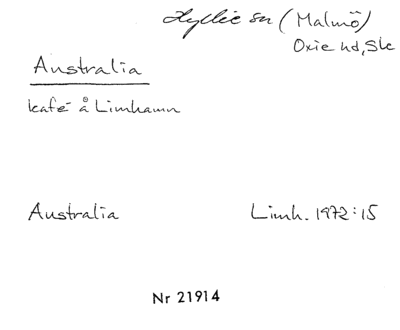 Hyllie sn (Malmö)
Oxie hd, Sk
Australia
kafé å Limhamn
Australia Limh. 1972:15
Nr 21914